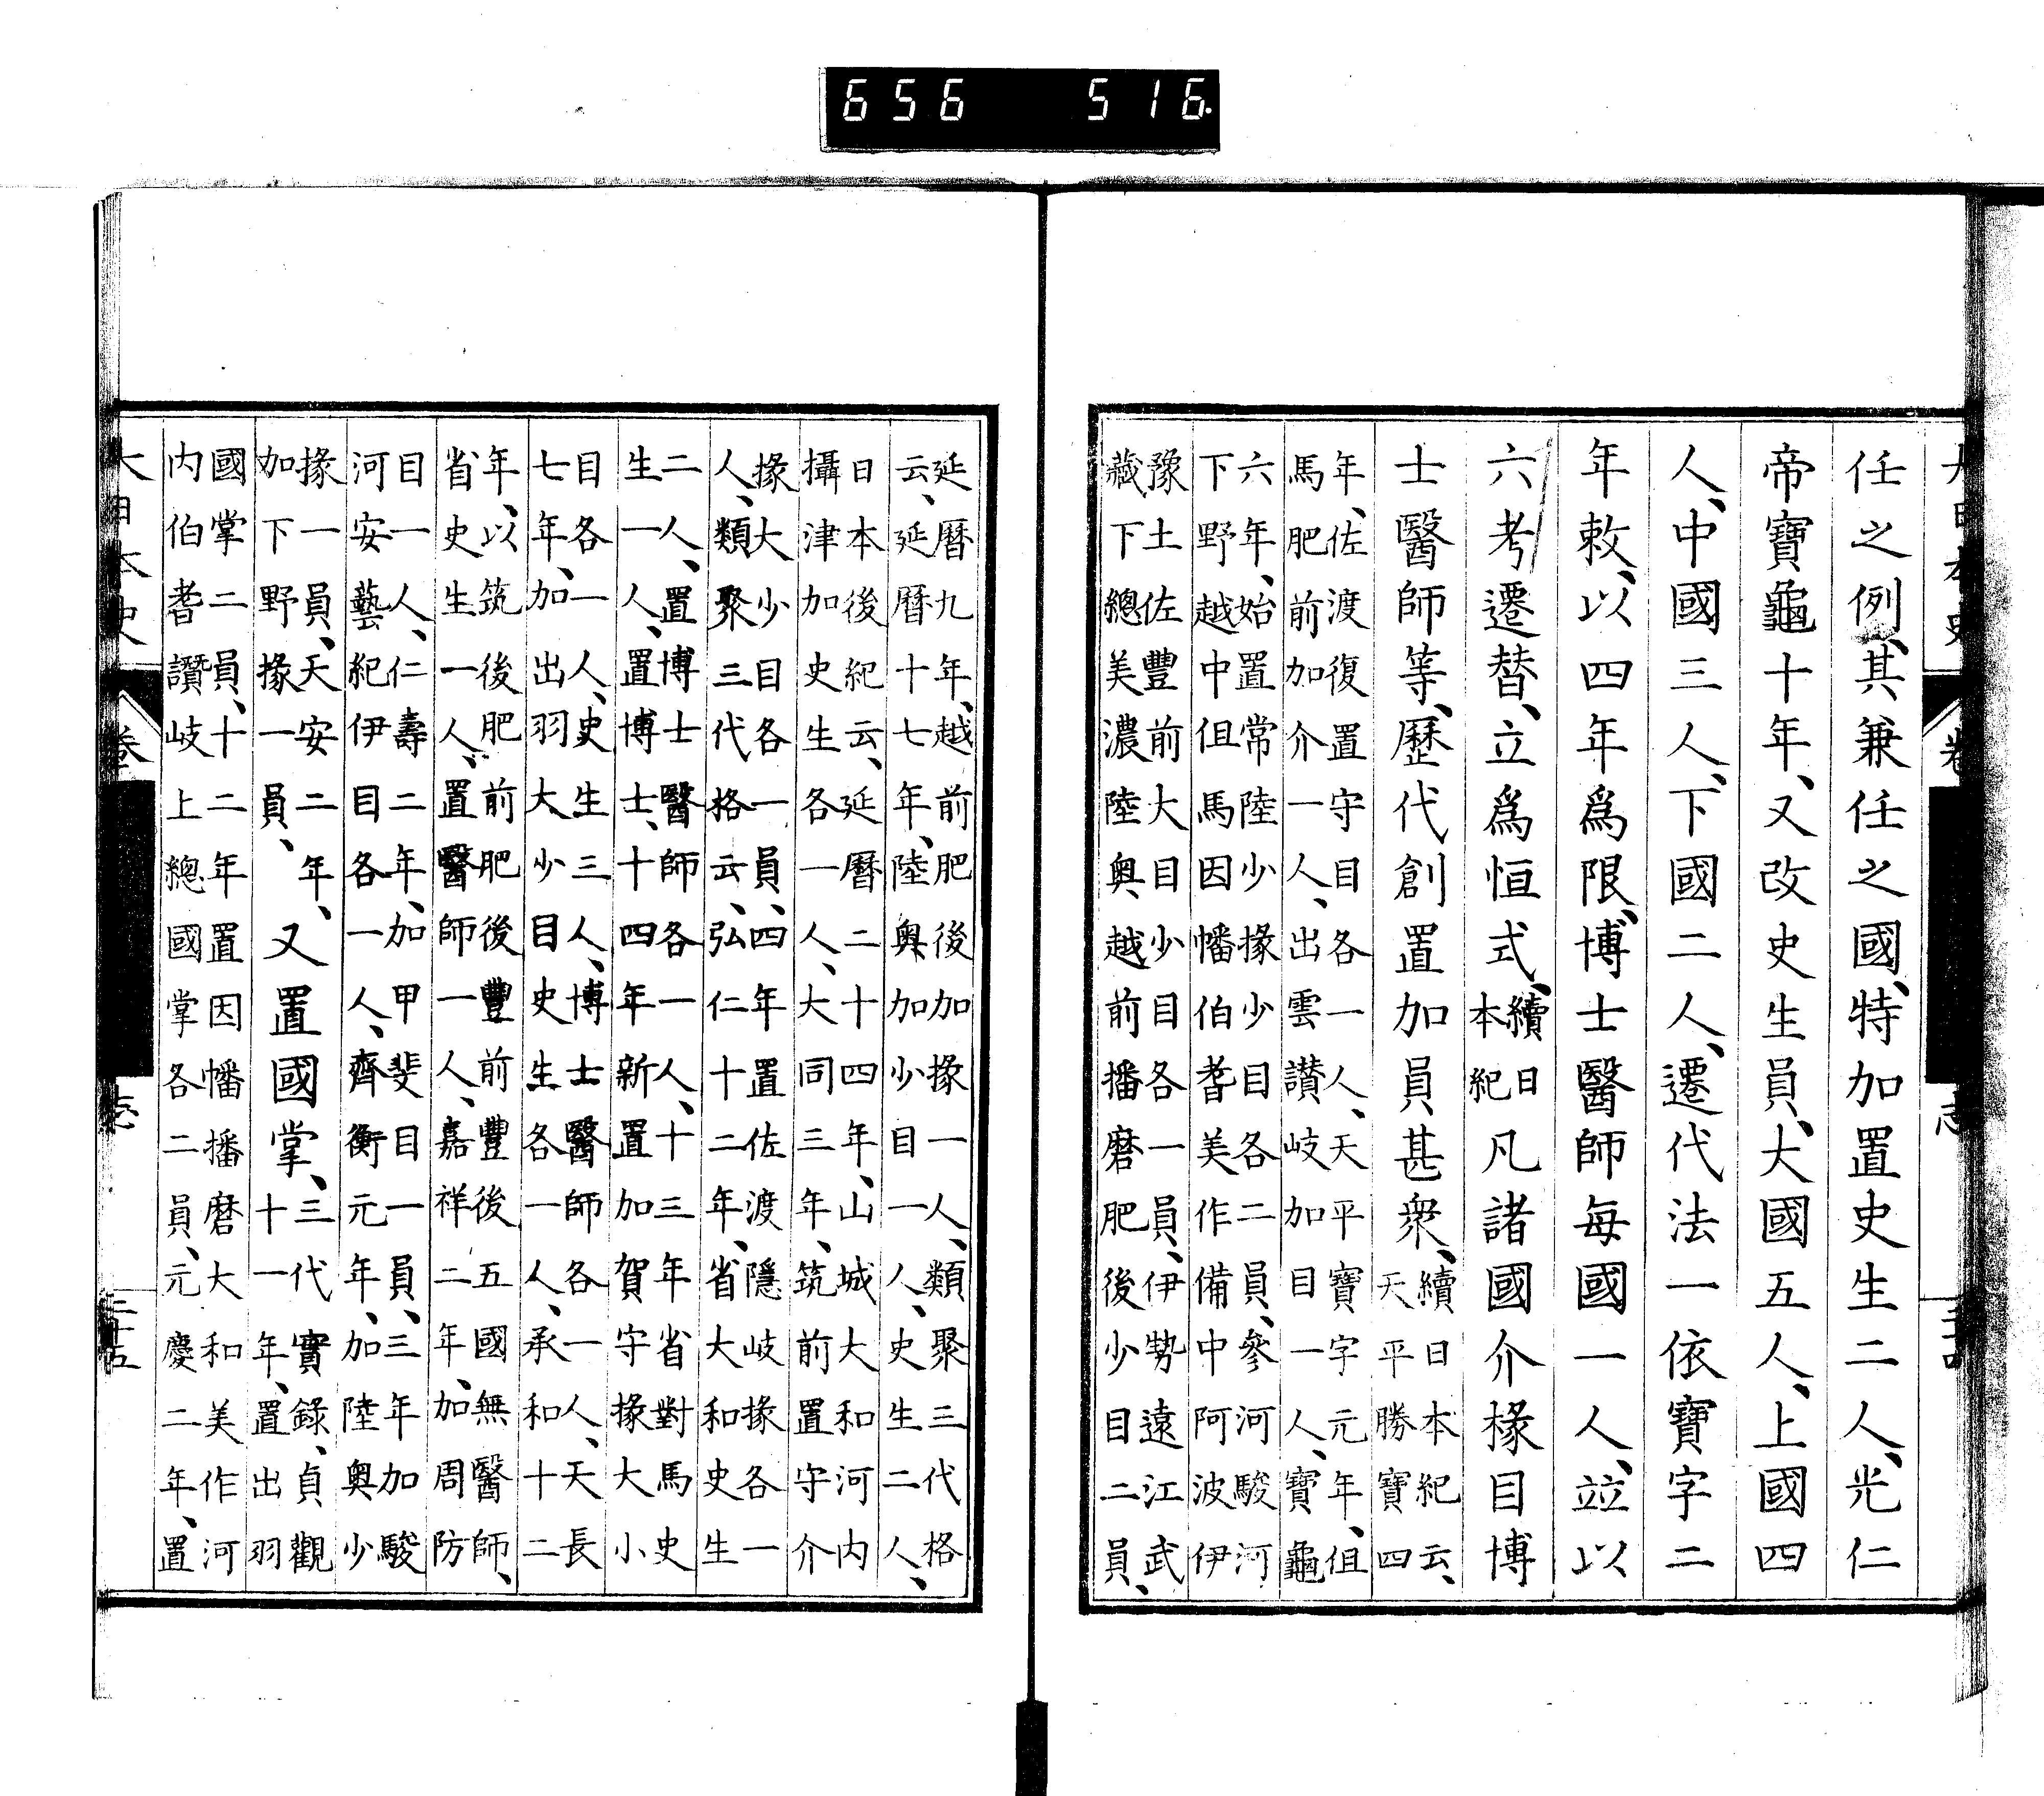 656 516
大日本史 卷 志 三十四
任之例、其兼任之國、特加置史生二人、光仁
帝寶龜十年、又改史生員、大國五人、上國四
人、中國三人、下國二人、遷代法一依寶字二
年敕、以四年爲限、博士醫師毎國一人、竝以
六考遷替、立爲恒式、續日本紀凡諸國介掾目博
士醫師等、歷代創置加員甚衆、續日本紀云、天平勝寶四
年、佐渡復置守目各一人、天平寶字元年、但
馬肥前加介一人、出雲讃岐加目一人、寶龜
六年、始置常陸少掾少目各二員、參河駿河
下野越中但馬因幡伯耆美作備中阿波伊
豫土佐豐前大目少目各一員、伊勢遠江武
藏下總美濃陸奥越前播磨肥後少目二員、
延曆九年、越前肥後加掾一人、類聚三代格
云、延曆十七年、陸奥加少目一人、史生二人、
日本後紀云、延曆二十四年、山城大和河内
攝津加史生各一人、大同三年、筑前置守介
掾大少目各一員、四年置佐渡隱岐掾各一
人、類聚三代格云、弘仁十二年、省大和史生
二人、置博士醫師各一人、十三年省對馬史
生一人、置博士、十四年新置加賀守掾大小
目各一人、史生三人、博士醫師各一人、天長
七年、加出羽大少目史生各一人、承和十二
年、以筑後肥前肥後豐前豐後五國無醫師、
省史生一人、置醫師一人、嘉祥二年、加周防
目一人、仁壽二年、加甲斐目一員、三年加駿
河安藝紀伊目各一人、齊衡元年、加陸奥少
掾一員、天安二年、加下野掾一員、又置國掌、三代實錄、貞觀十一年、置出羽
國掌二員、十二年置因幡播磨大和美作河
内伯耆讚岐上總國掌各二員、元慶二年、置
大日本史 卷 志 三十五